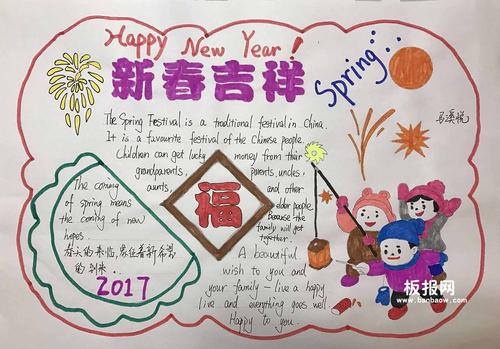 Happy New Year!
新春吉祥
Spring
马溪悦
The Spring Festival is a traditional festival in China.
It is a favourite festival of the Chinese people.
Children can get lucky money from their
grandparents, parents, uncles,
aunts, and other
elder people.
Because the
family will get
together.
福
The coming
of spring means
the coming of new
hopes.
春天的来临意味着新希望
的到来.
2017
A beautiful
wish to you and
your family - live a happy
live and everything goes well
Happy to you.
板报网
www.banbaow.com